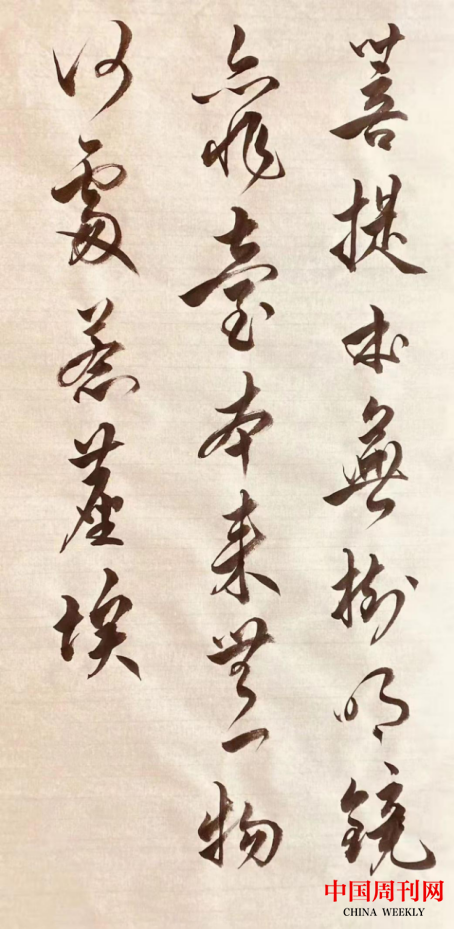 菩提本無樹明鏡
亦非臺本來無一物
何處惹塵埃
中国周刊网
CHINA WEEKLY